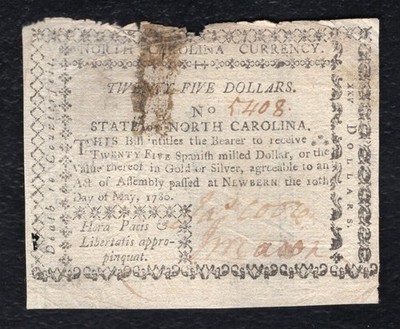 NORTH CAROLINA CURRENCY.
TWENTY FIVE DOLLARS.
No 5408
STATE of NORTH CAROLINA.
THIS Bill entitles the Bearer to receive
TWENTY FIVE Spanish milled Dollar, or the
Value thereof in Gold or Silver, agreeable to an
Act of Assembly passed at NEWBERN, the 10th
Day of May, 1780.
Hora Pacis &
Libertatis appro-
pinquat.
Death to Counterfeit.
XXV DOLLARS